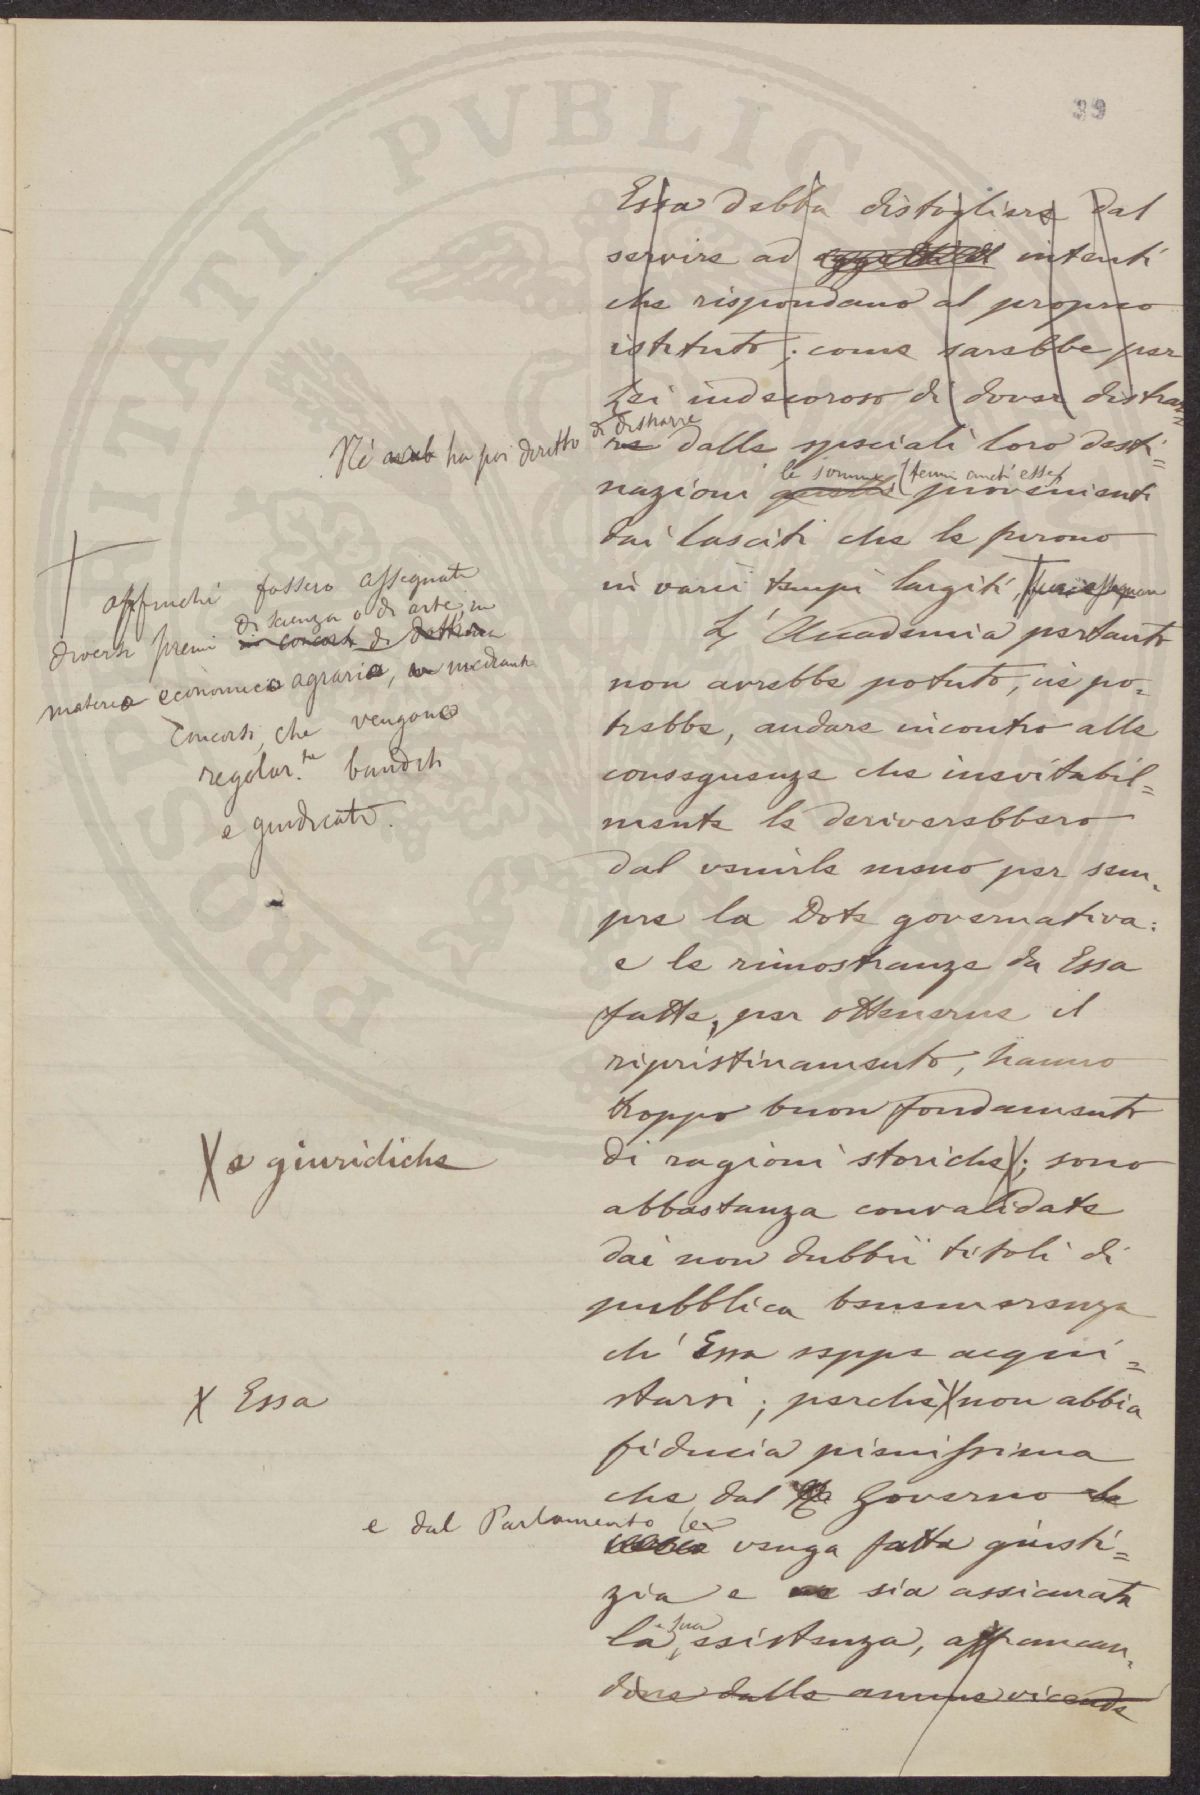 39
Essa debba distogliere dal
servire ad oggetti ed intenti
che rispondano al proprio
istituto; come sarebbe per
Lei indecoroso di dover distrar=
Nè ha poi diritto di distrarre
re dalle speciali loro desti=
le somme (tenui anch'esse)
nazioni queste provenienti
dai lasciti che le furono
in varii tempi largiti,
† affinchè fossero assegnati
di scienza o di arte, in
diversi premi in concorsi di
materia economico agraria, mediante
concorsi, che vengono
regolar.te banditi
e giudicati.
L'Accademia pertanto
non avrebbe potuto, nè po=
trebbe, andare incontro alle
conseguenze che inevitabil=
mente le deriverebbero
dal venirle meno per sem=
pre la Dote governativa:
e le rimostranze da Essa
fatte, per ottenerne il
ripristinamento, hanno
troppo buon fondamento
di ragioni storiche X; sono
X e giuridiche
abbastanza convalidate
dai non dubbii titoli di
pubblica benemerenza
ch'Essa seppe acqui=
starsi; perchè X non abbia
X Essa
fiducia pienissima
che dal Governo le
e dal Parlamento le
venga fatta giusti=
zia e ne sia assicurata
la sua esistenza, affrancan=
done dalle annue vicende
PROSPERITATI PVBLICAE